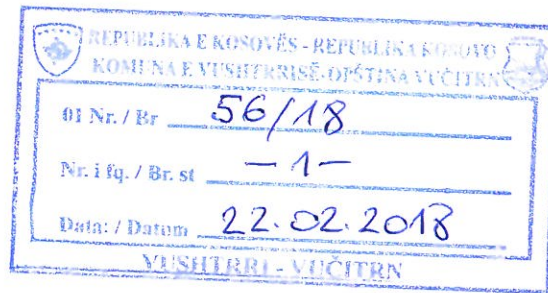 REPUBLIKA E KOSOVËS - REPUBLIKA KOSOVO
KOMUNA E VUSHTRRISË-OPŠTINA VUČITRN
01 Nr. / Br 56/18
Nr. i fq. / Br. st -1-
Data: / Datum 22.02.2018
VUSHTRRI - VUČITRN